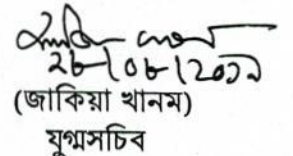 ২৮/০৮/২০১৯
(জাকিয়া খানম)
যুগ্মসচিব